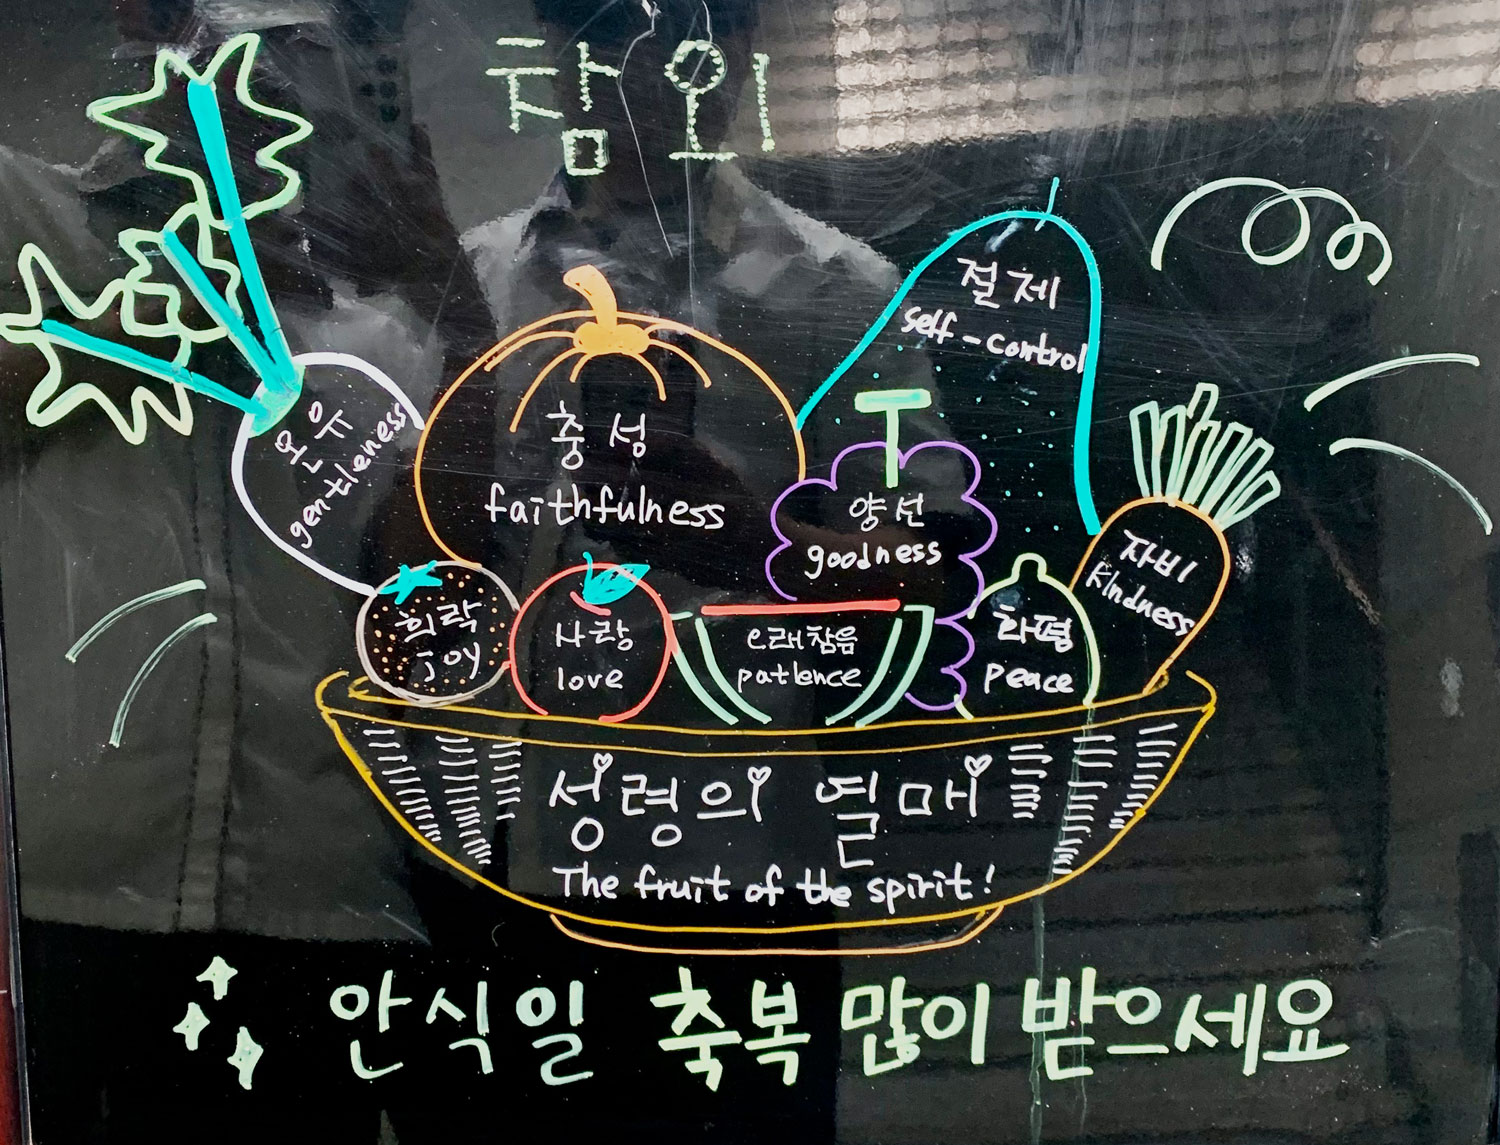 참외
절제
self-control
온유
gentleness
충성
faithfulness
양선
goodness
자비
kindness
희락
joy
사랑
love
오래참음
patience
화평
peace
성령의 열매
The fruit of the spirit!
안식일 축복 많이 받으세요